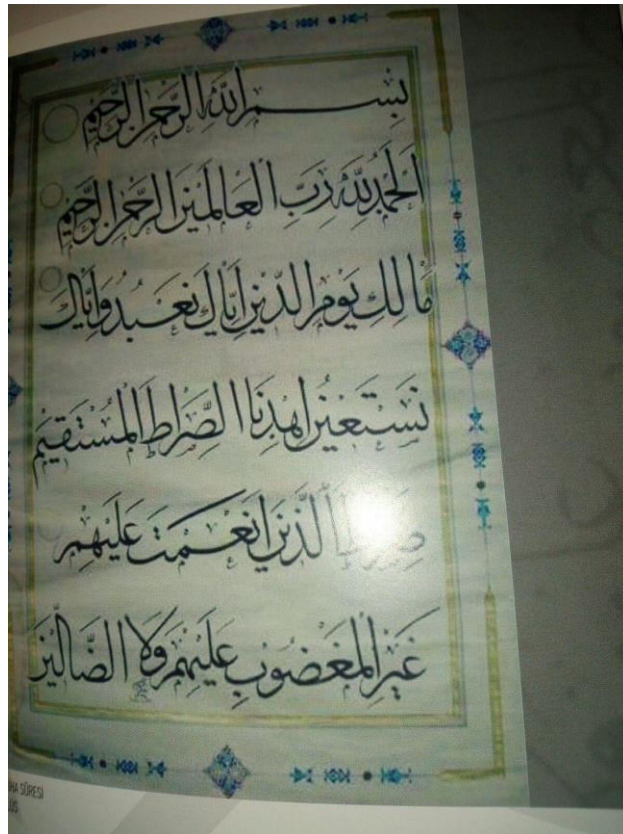 بِسْمِ اللّٰهِ الرَّحْمٰنِ الرَّحِيمِ
اَلْحَمْدُ لِلّٰهِ رَبِّ الْعَالَمِينَ الرَّحْمٰنِ الرَّحِيمِ
مَالِكِ يَوْمِ الدِّينِ اِيَّاكَ نَعْبُدُ وَاِيَّاكَ
نَسْتَعِينُ اِهْدِنَا الصِّرَاطَ الْمُسْتَقِيمَ
صِرَاطَ الَّذِينَ اَنْعَمْتَ عَلَيْهِمْ
غَيْرِ الْمَغْضُوبِ عَلَيْهِمْ وَلَا الضَّالِّينَ
SÛRESİ